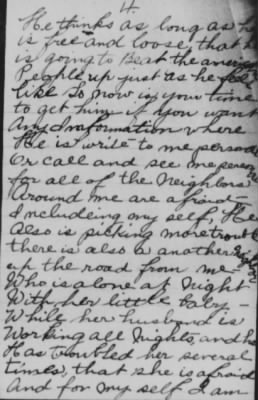 4.
He thinks as long as he
is free and loose, that he
is going to Beat the
People up just as he feels
like So now is your time
to get him if you want
Any Information where
He is write to me
Or call and see me
for all of the Neighbors
Around me are afraid -
Includeing my self, He
Also is picking more trouble
there is also a another
up the road from me -
Who is alone at Night
With her little baby -
While her husband is
Working all Nights, and he
Has troubled her several
times, that she is afraid
And for my self I am